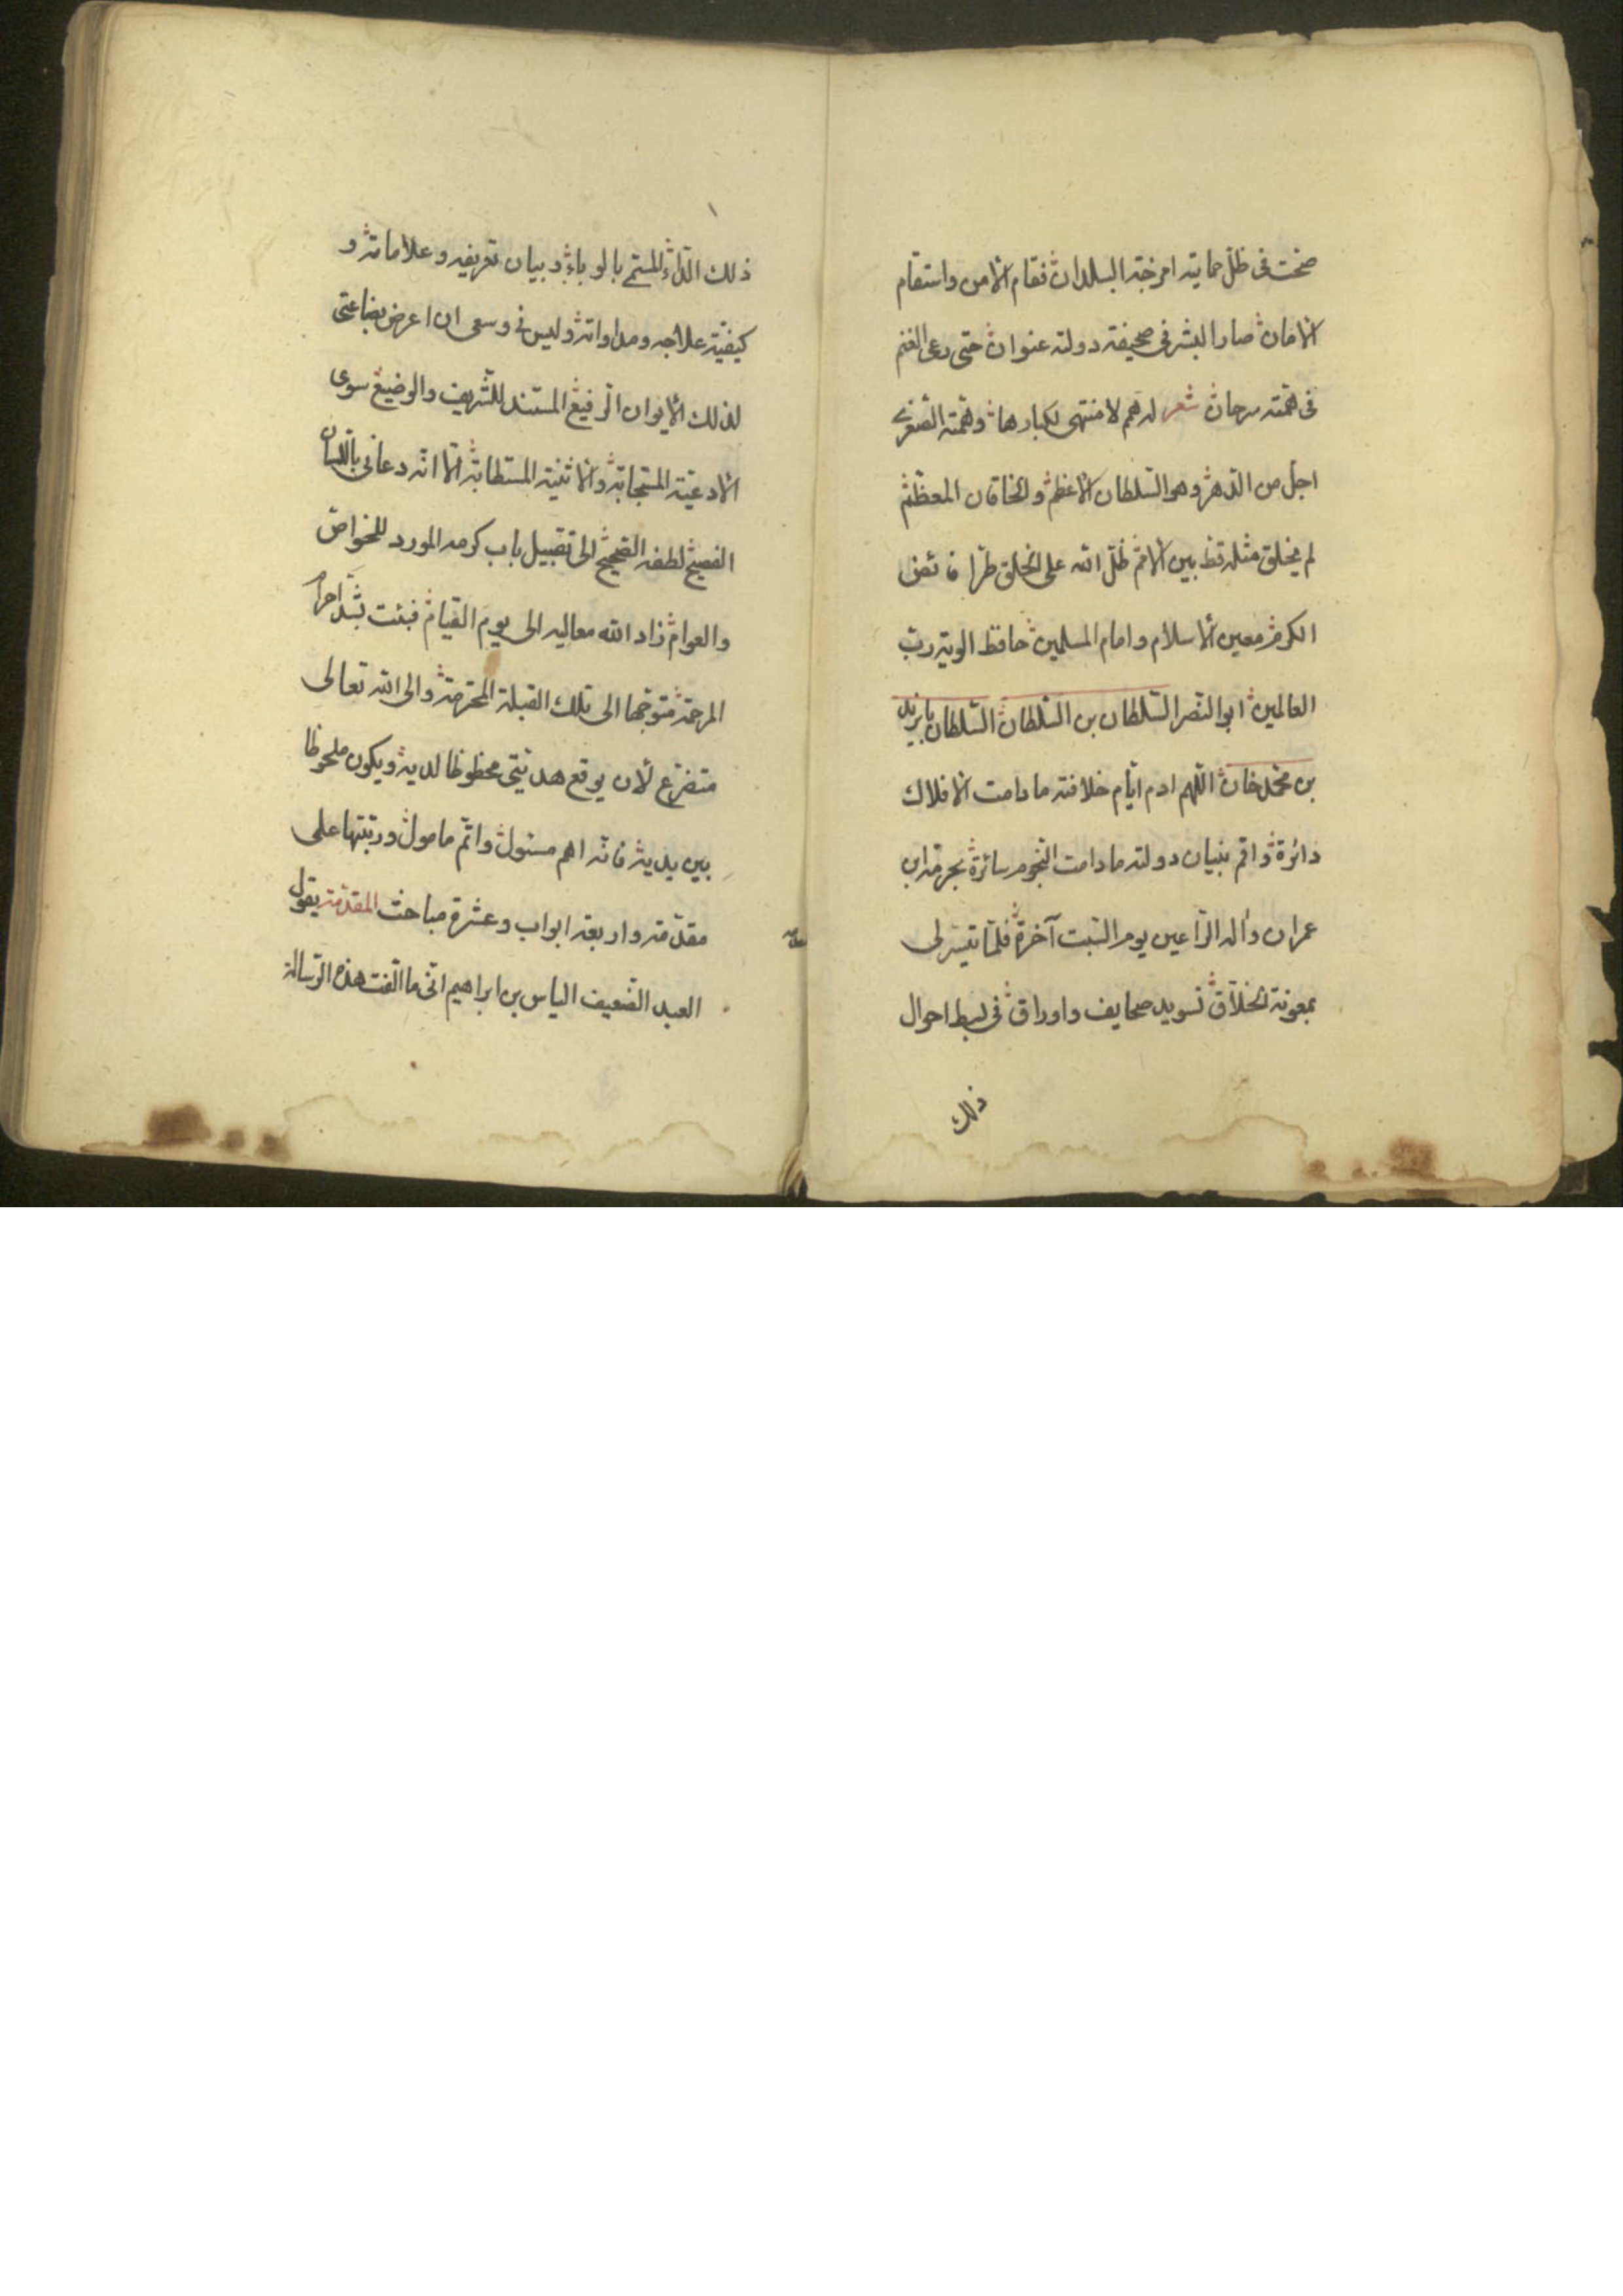 صحت فى ظلّ حمايته امزجة البلدان فقام الامن واستقام
الامان صار البشر فى صحيفة دولته عنوان حتى رعى الغنم
فى همته سرحان شعر له همم لا منتهى لكبارها وهمته الصغرى
اجل من الدهر وهو السلطان الاعظم والخاقان المعظم
لم يخلق مثله قط بين الامم ظلّ الله على الخلق طرا
الكرم معين الاسلام وامام المسلمين حافظ الوية ربّ
العالمين ابو النصر السلطان بن السلطان السلطان بايزيد
بن محمد خان اللهم ادم ايّام خلافته ما دامت الافلاك
دائرة واقم بنيان دولته ما دامت النجوم سائرة بحرمة ابن
عمران وآله الراعين يوم السبت آخره فلمّا تيسّر لى
بمعونة الخلّاق تسويد صحايف واوراق فى بسط احوال
ذلك
ذلك الداء المسمّى بالوباء وبيان تعريفه وعلاماته و
كيفيّة علاجه ومداواته وليس فى وسعى ان اعرض بضاعتى
لذلك الايوان الرفيع المستند للشريف والوضيع سوى
الادعية المستجابة والاثنية المستطابة الا انه دعانى باللسان
الفصيح لطفه الصحيح الى تقبيل باب كرمه المورد للخواصّ
والعوام زاد الله معاليه الى يوم القيام فجئت بشدّ احرام
المرحمة متوجّها الى تلك القبلة المحترمة والى الله تعالى
متضرّع لأن يوقع هديتى محظوظا لديه ويكون ملحوظا
بين يديه فانه اهم مسئول واتمّ مامول ورتبتها على
مقدّمة واربعة ابواب وعشرة مباحث المقدّمة يقول
العبد الضعيف الياس بن ابراهيم انى ما الّفت هذه الرسالة